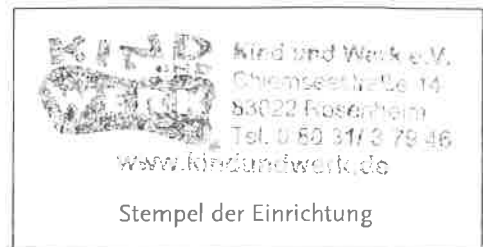 KIND
Kind und Werk e.V.
Chiemseestraße 14
83022 Rosenheim
Tel. 0 80 31/ 3 79 46
www.kindundwerk.de
Stempel der Einrichtung